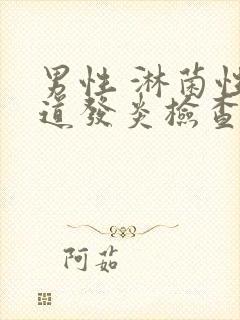 男性 淋菌性
道發炎檢查
阿茹